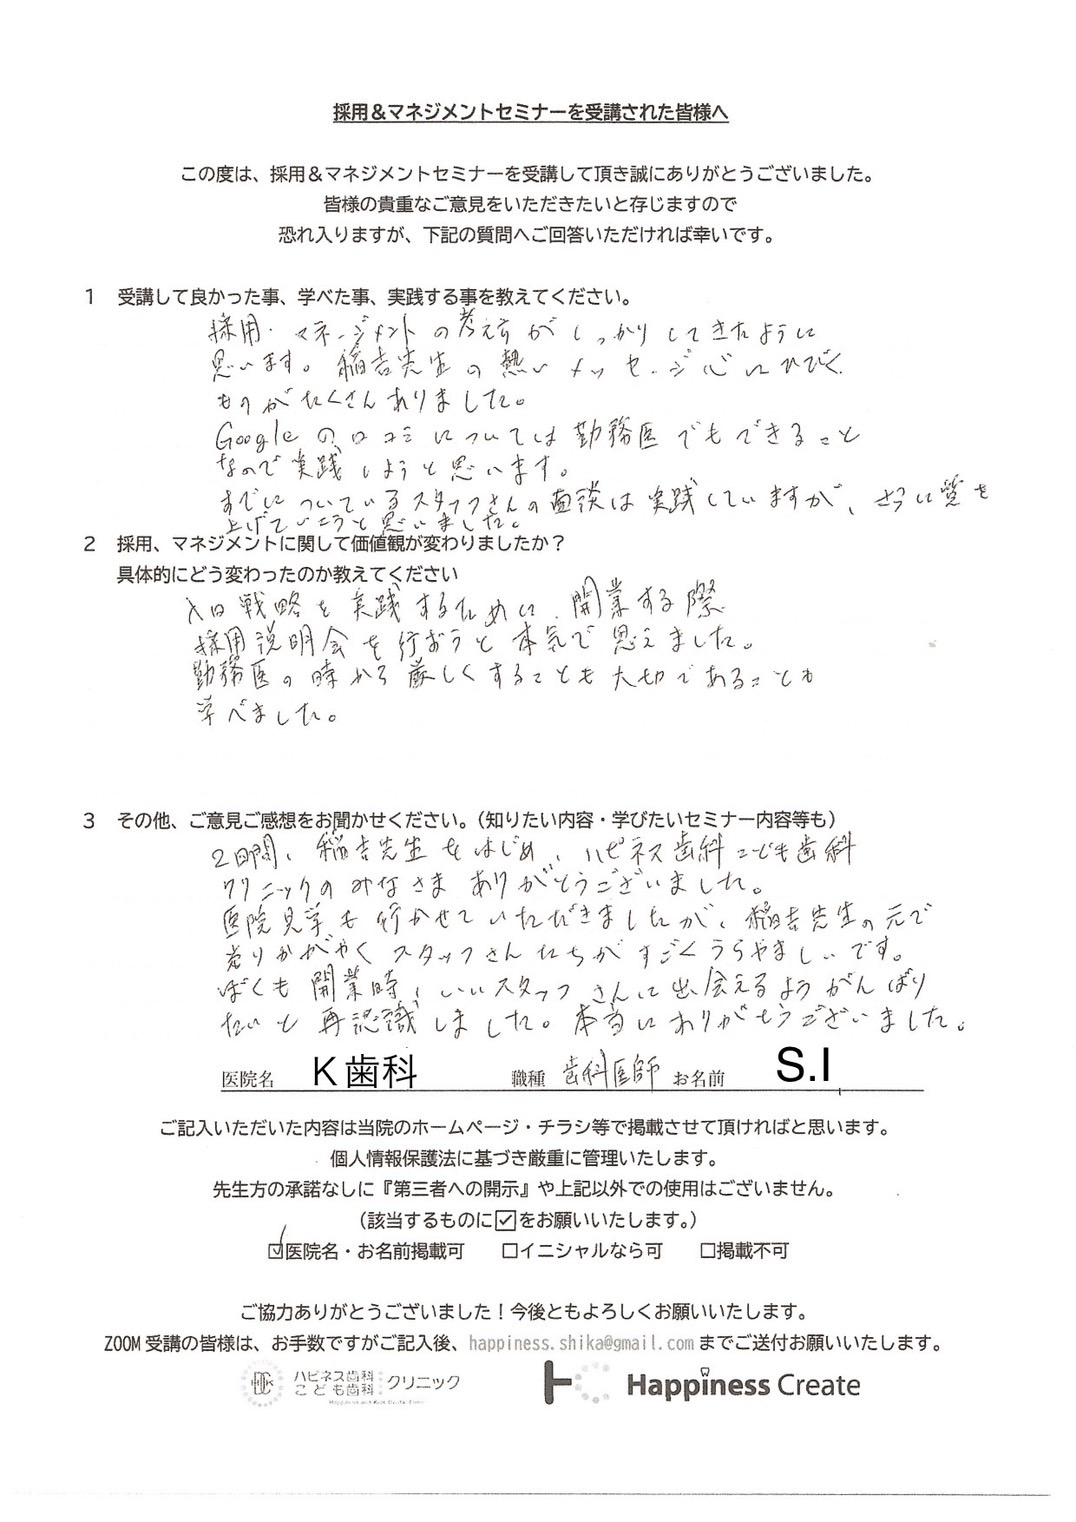 採用＆マネジメントセミナーを受講された皆様へ
この度は、採用＆マネジメントセミナーを受講して頂き誠にありがとうございました。
皆様の貴重なご意見をいただきたいと存じますので
恐れ入りますが、下記の質問へご回答いただければ幸いです。
1 受講して良かった事、学べた事、実践する事を教えてください。
採用・マネージメントの考え方がしっかりしてきたように
思います。稲吉先生の熱いメッセージ心にひびく
ものがたくさんありました。
Googleの口コミについては勤務医でもできること
なので実践しようと思います。
すでについているスタッフさんの面談は実践していますが、さらに質を
上げていこうと思いました。
2 採用、マネジメントに関して価値観が変わりましたか？
具体的にどう変わったのか教えてください
入口戦略を実践するために、開業する際
採用説明会を行おうと本気で思えました。
勤務医の時から厳しくすることも大切であることも
学べました。
3 その他、ご意見ご感想をお聞かせください。（知りたい内容・学びたいセミナー内容等も）
2日間、稲吉先生をはじめ、ハピネス歯科こども歯科
クリニックのみなさまありがとうございました。
医院見学も行かせていただきましたが、稲吉先生の元で
光りかがやくスタッフさんたちがすごくうらやましいです。
ぼくも開業時、いいスタッフさんに出会えるようがんばり
たいと再認識しました。本当にありがとうございました。
医院名 K歯科 職種 歯科医師 お名前 S.I
ご記入いただいた内容は当院のホームページ・チラシ等で掲載させて頂ければと思います。
個人情報保護法に基づき厳重に管理いたします。
先生方の承諾なしに『第三者への開示』や上記以外での使用はございません。
（該当するものに☑をお願いいたします。）
☑医院名・お名前掲載可 □イニシャルなら可 □掲載不可
ご協力ありがとうございました！今後ともよろしくお願いいたします。
ZOOM受講の皆様は、お手数ですがご記入後、happiness.shika@gmail.comまでご送付お願いいたします。
ハピネス歯科
こども歯科 クリニック
Happiness Create